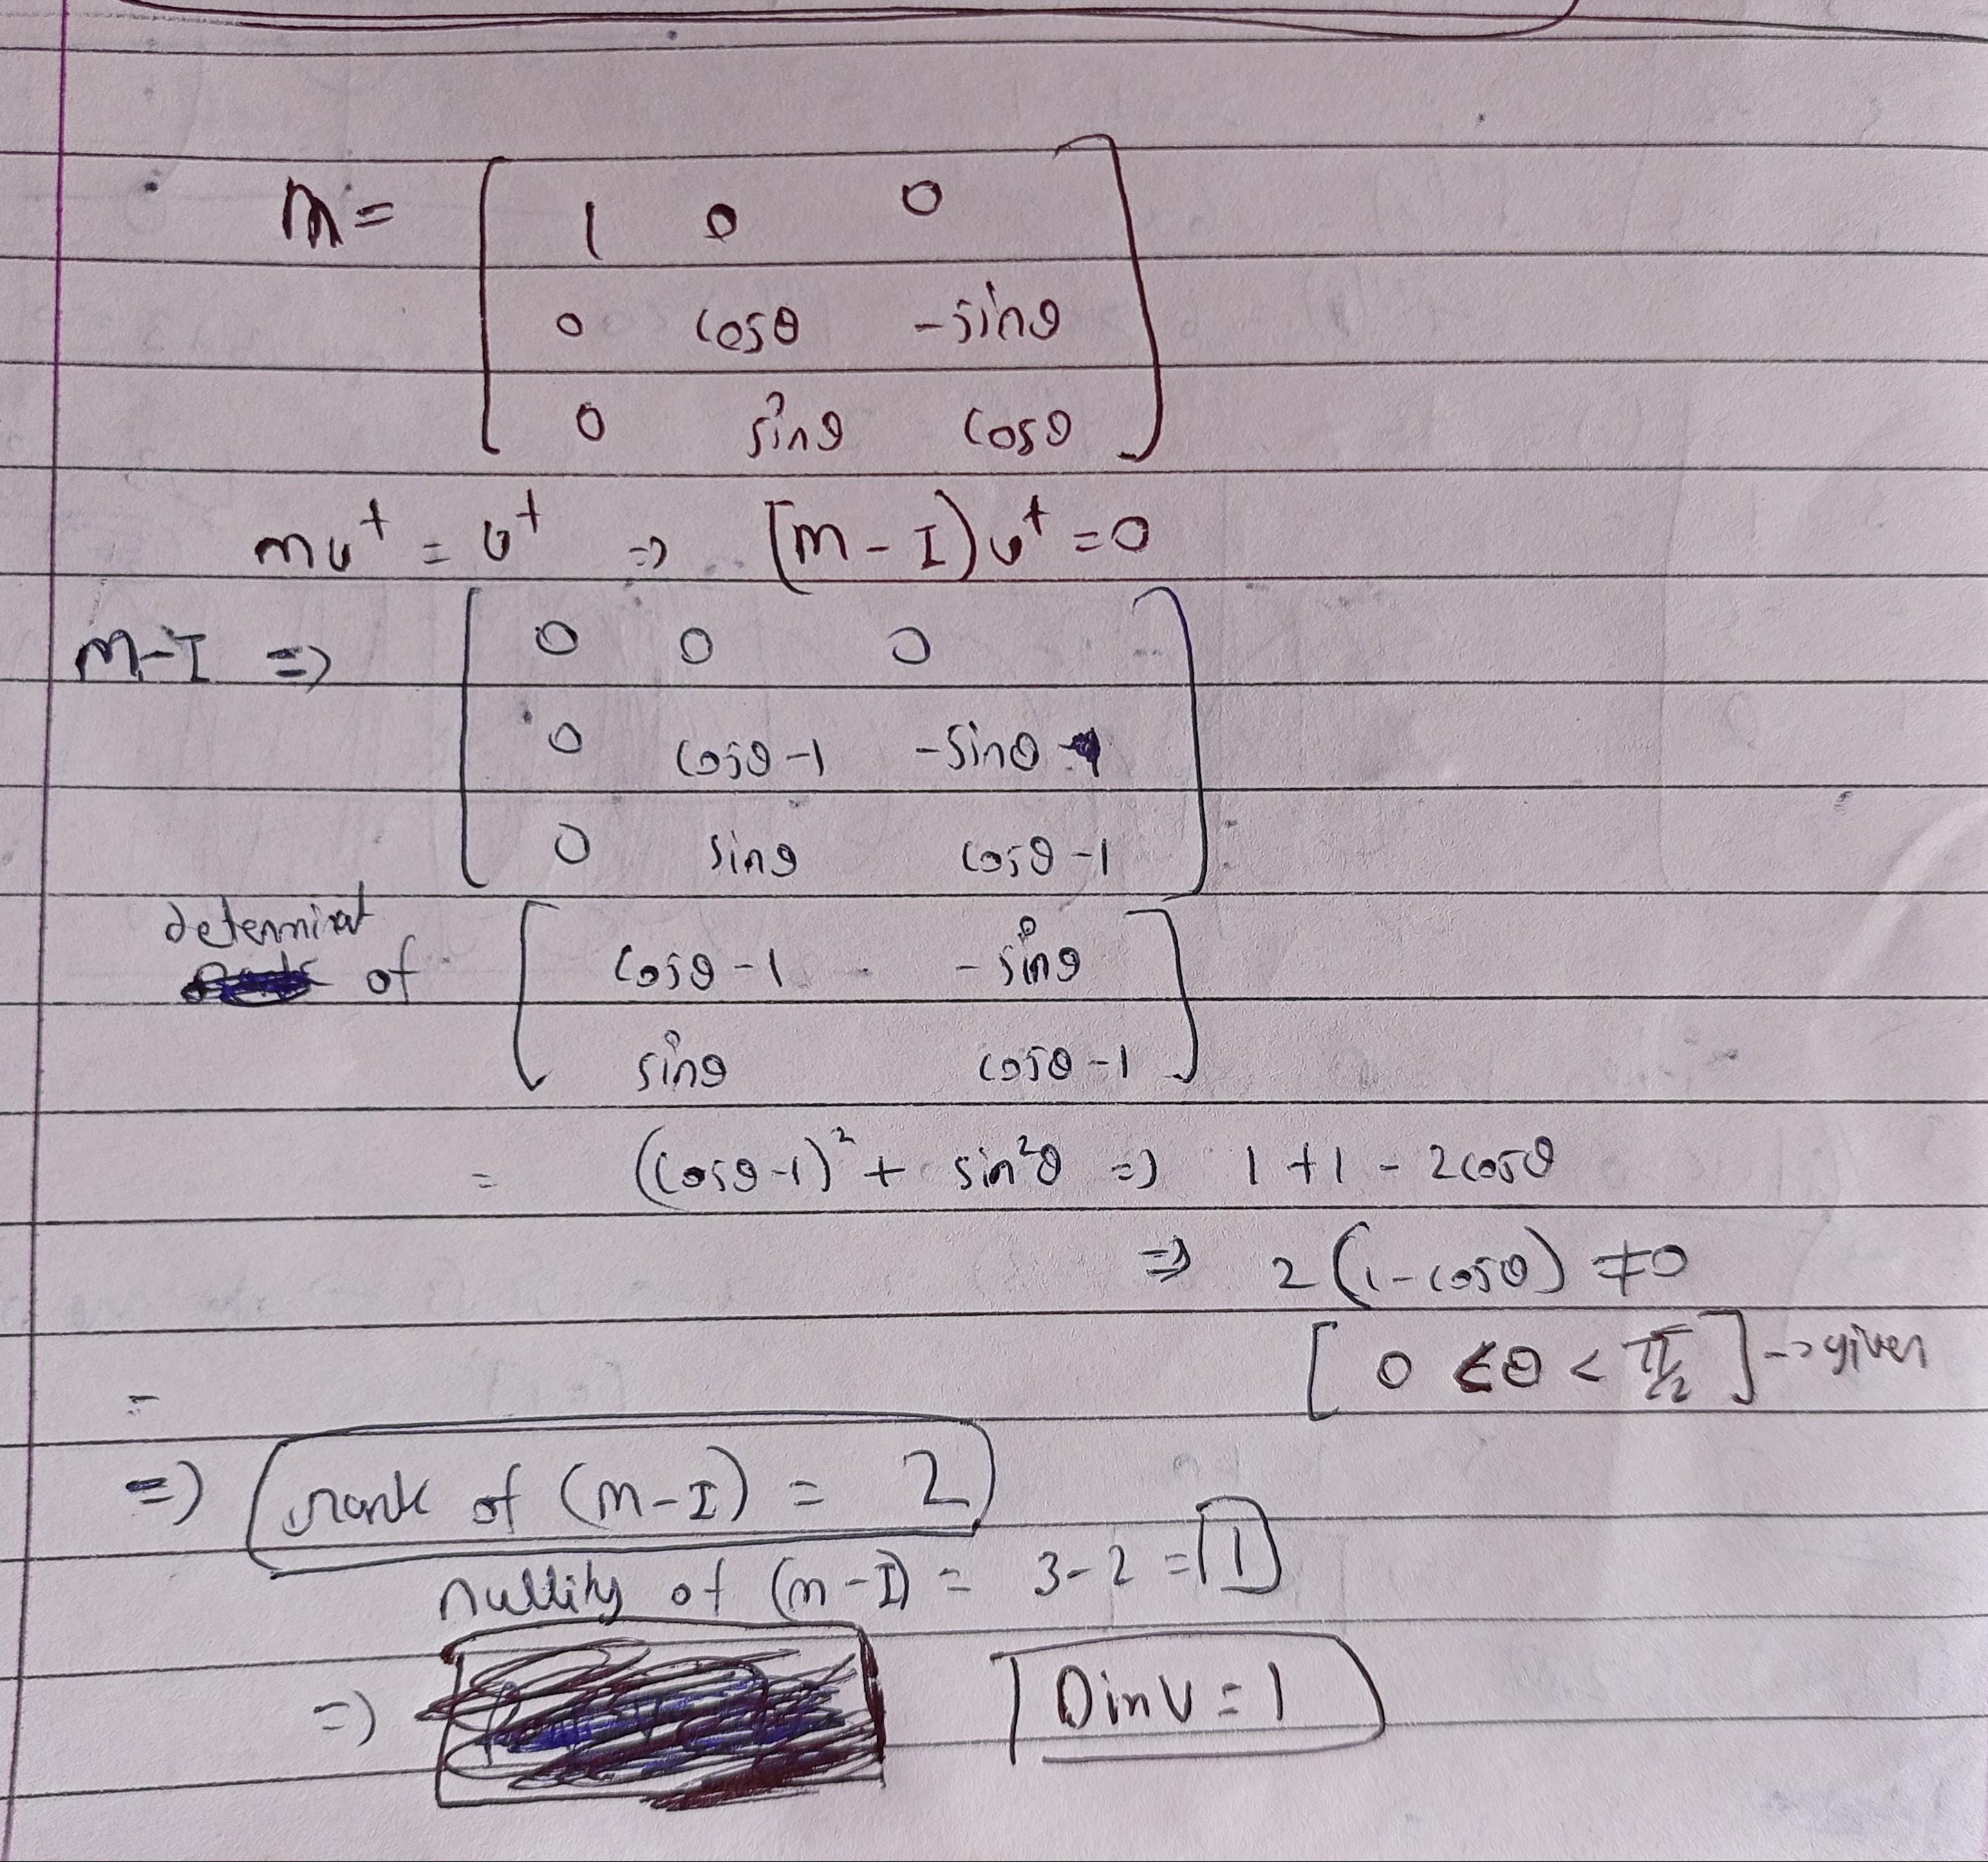 m = [ 1 0 0
0 cosθ -sinθ
0 sinθ cosθ ]
mv^t = v^t => [m - I)v^t = 0
m-I => [ 0 0 0
0 cosθ-1 -sinθ
0 sinθ cosθ-1 ]
determinat
of [ cosθ-1 -sinθ
sinθ cosθ-1 ]
= (cosθ-1)² + sin²θ => 1+1-2cosθ
=> 2(1-cosθ) ≠0
[ 0 < θ < π/2 ] -> given
=
=> rank of (m-I) = 2
nullity of (m-I) = 3-2 = 1
=> Dim V = 1